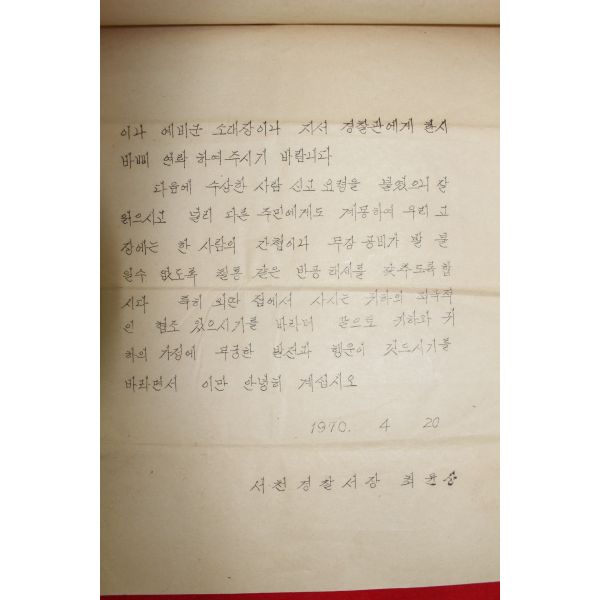 이나 예비군 소대장이나 지서 경찰관에게 한시
바삐 연락 하여 주시기 바랍니다
다음에 수상한 사람 신고 요령을 붙였으니 잘
읽으시고 널리 다른 주민에게도 계몽하여 우리 고
장에는 한 사람의 간첩이나 무장 공비가 발 붙
일수 없도록 철통 같은 반공 태세를 갖추도록 합
시다 특히 외딴 집에서 사시는 귀하의 적극적
인 협조 있으시기를 바라며 끝으로 귀하와 귀
하의 가정에 무궁한 발전과 행운이 깃드시기를
바라면서 이만 안녕히 계십시오
1970. 4 20
서천경찰서장 최